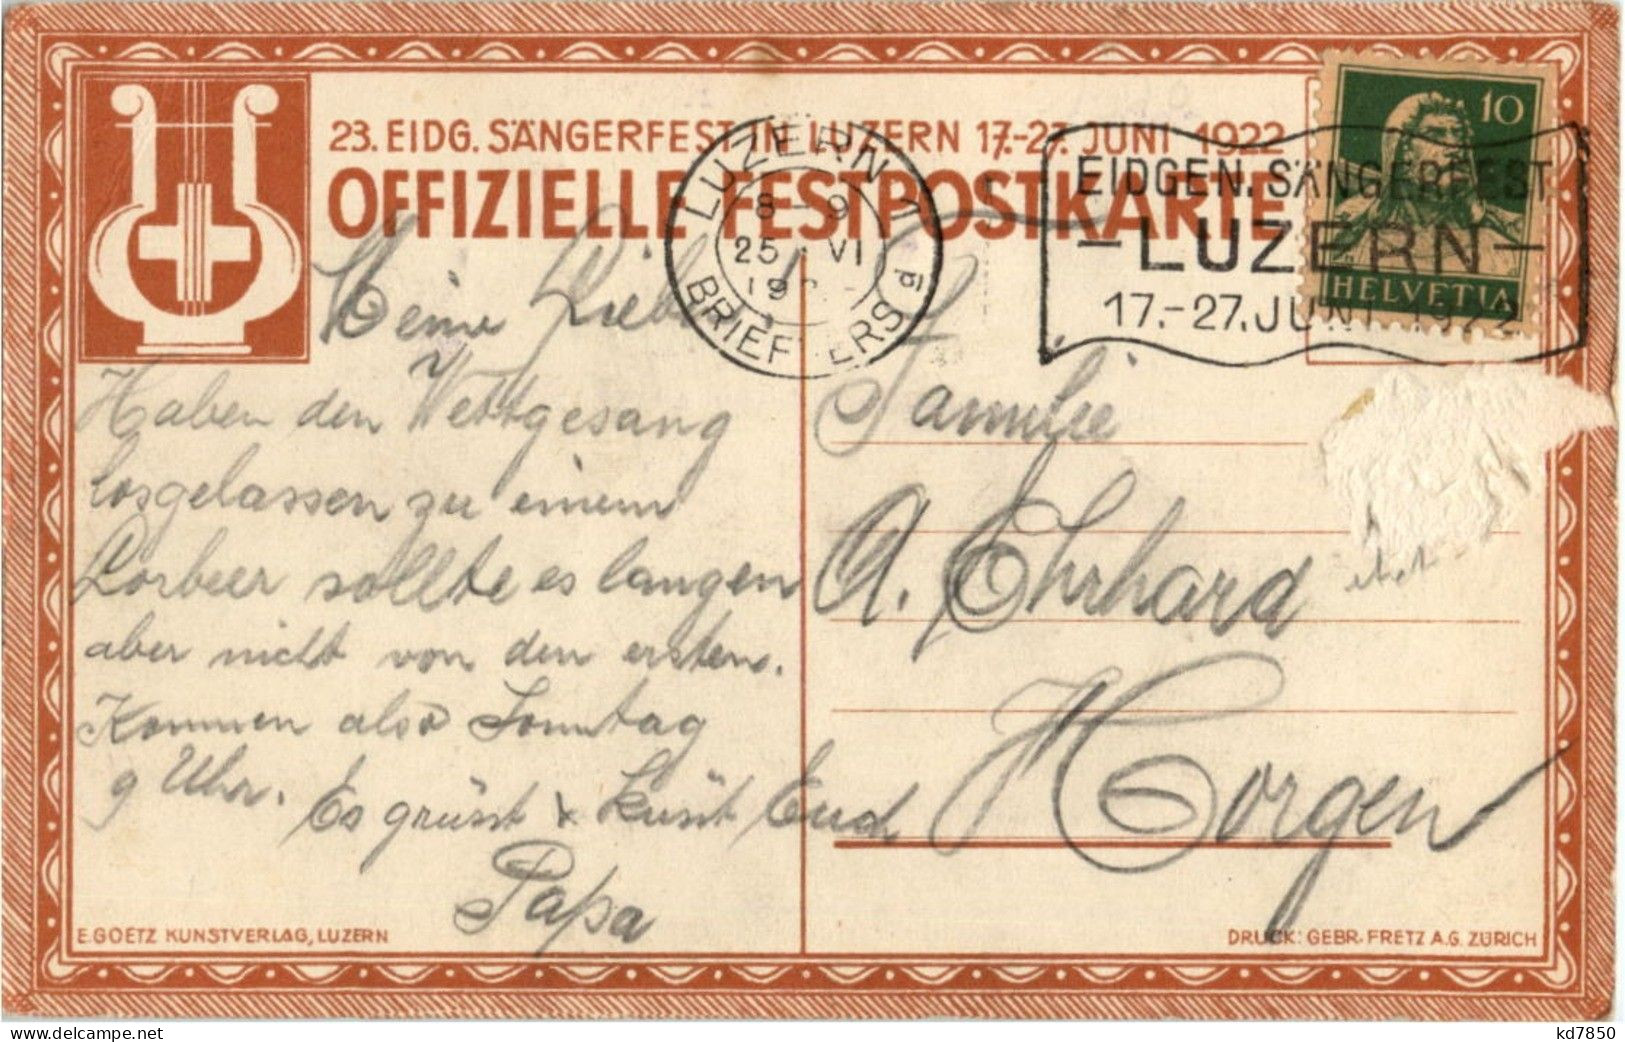 23. EIDG. SÄNGERFEST IN LUZERN 17.-27. JUNI 1922
OFFIZIELLE FESTPOSTKARTE
LUZERN 1
8-9
25. VI
19
BRIEFVERS d
EIDGEN. SÄNGERFEST
-LUZERN-
17.-27. JUNI 1922
10
HELVETIA
Meine Liebe
Haben den Wettgesang
losgelassen zu einem
Lorbeer sollte es langen
aber nicht von den ersten.
Kommen also Sonntag
9 Uhr. Es grüsst & küsst Euch
Papa
Familie
A. Ehrhard
Horgen
E. GOETZ KUNSTVERLAG, LUZERN
DRUCK: GEBR. FRETZ A.G. ZÜRICH
www.delcampe.net
kd7850